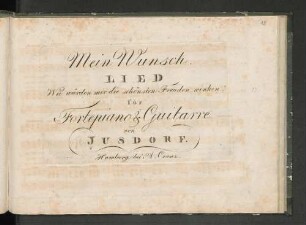 Mein Wunsch
LIED
Wie würden mir die schönsten Freuden winken
für
Fortepiano & Guitarre
von
JUSDORF.
Hamburg, bei